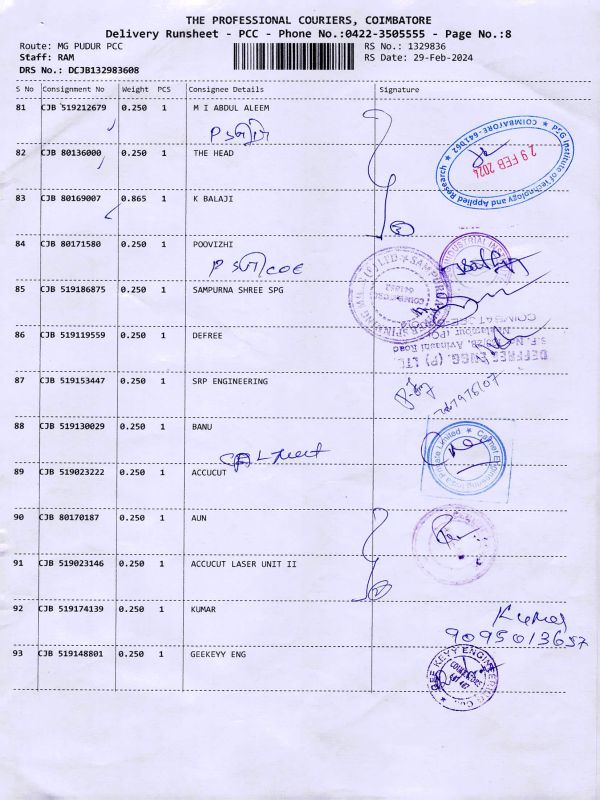 THE PROFESSIONAL COURIERS, COIMBATORE
Delivery Runsheet - PCC - Phone No.:0422-3505555 - Page No.:8
Route: MG PUDUR PCC RS No.: 1329836
Staff: RAM RS Date: 29-Feb-2024
DRS No.: DCJB132983608
S No Consignment No Weight PCS Consignee Details Signature
81 CJB 519212679 0.250 1 M I ABDUL ALEEM
82 CJB 80136000 0.250 1 THE HEAD
PSG Institute of Technology and Applied Research ★ COIMBATORE-641062 ★
29 FEB 2024
83 CJB 80169007 0.865 1 K BALAJI
2
84 CJB 80171580 0.250 1 POOVIZHI
85 CJB 519186875 0.250 1 SAMPURNA SHREE SPG
86 CJB 519119559 0.250 1 DEFREE
DEFFREE ENGG. (P) LTD.
Avinashi Road
87 CJB 519153447 0.250 1 SRP ENGINEERING
88 CJB 519130029 0.250 1 BANU
89 CJB 519023222 0.250 1 ACCUCUT
90 CJB 80170187 0.250 1 AUN
91 CJB 519023146 0.250 1 ACCUCUT LASER UNIT II
2
92 CJB 519174139 0.250 1 KUMAR
Kumar
9095013657
93 CJB 519148801 0.250 1 GEEKEYY ENG